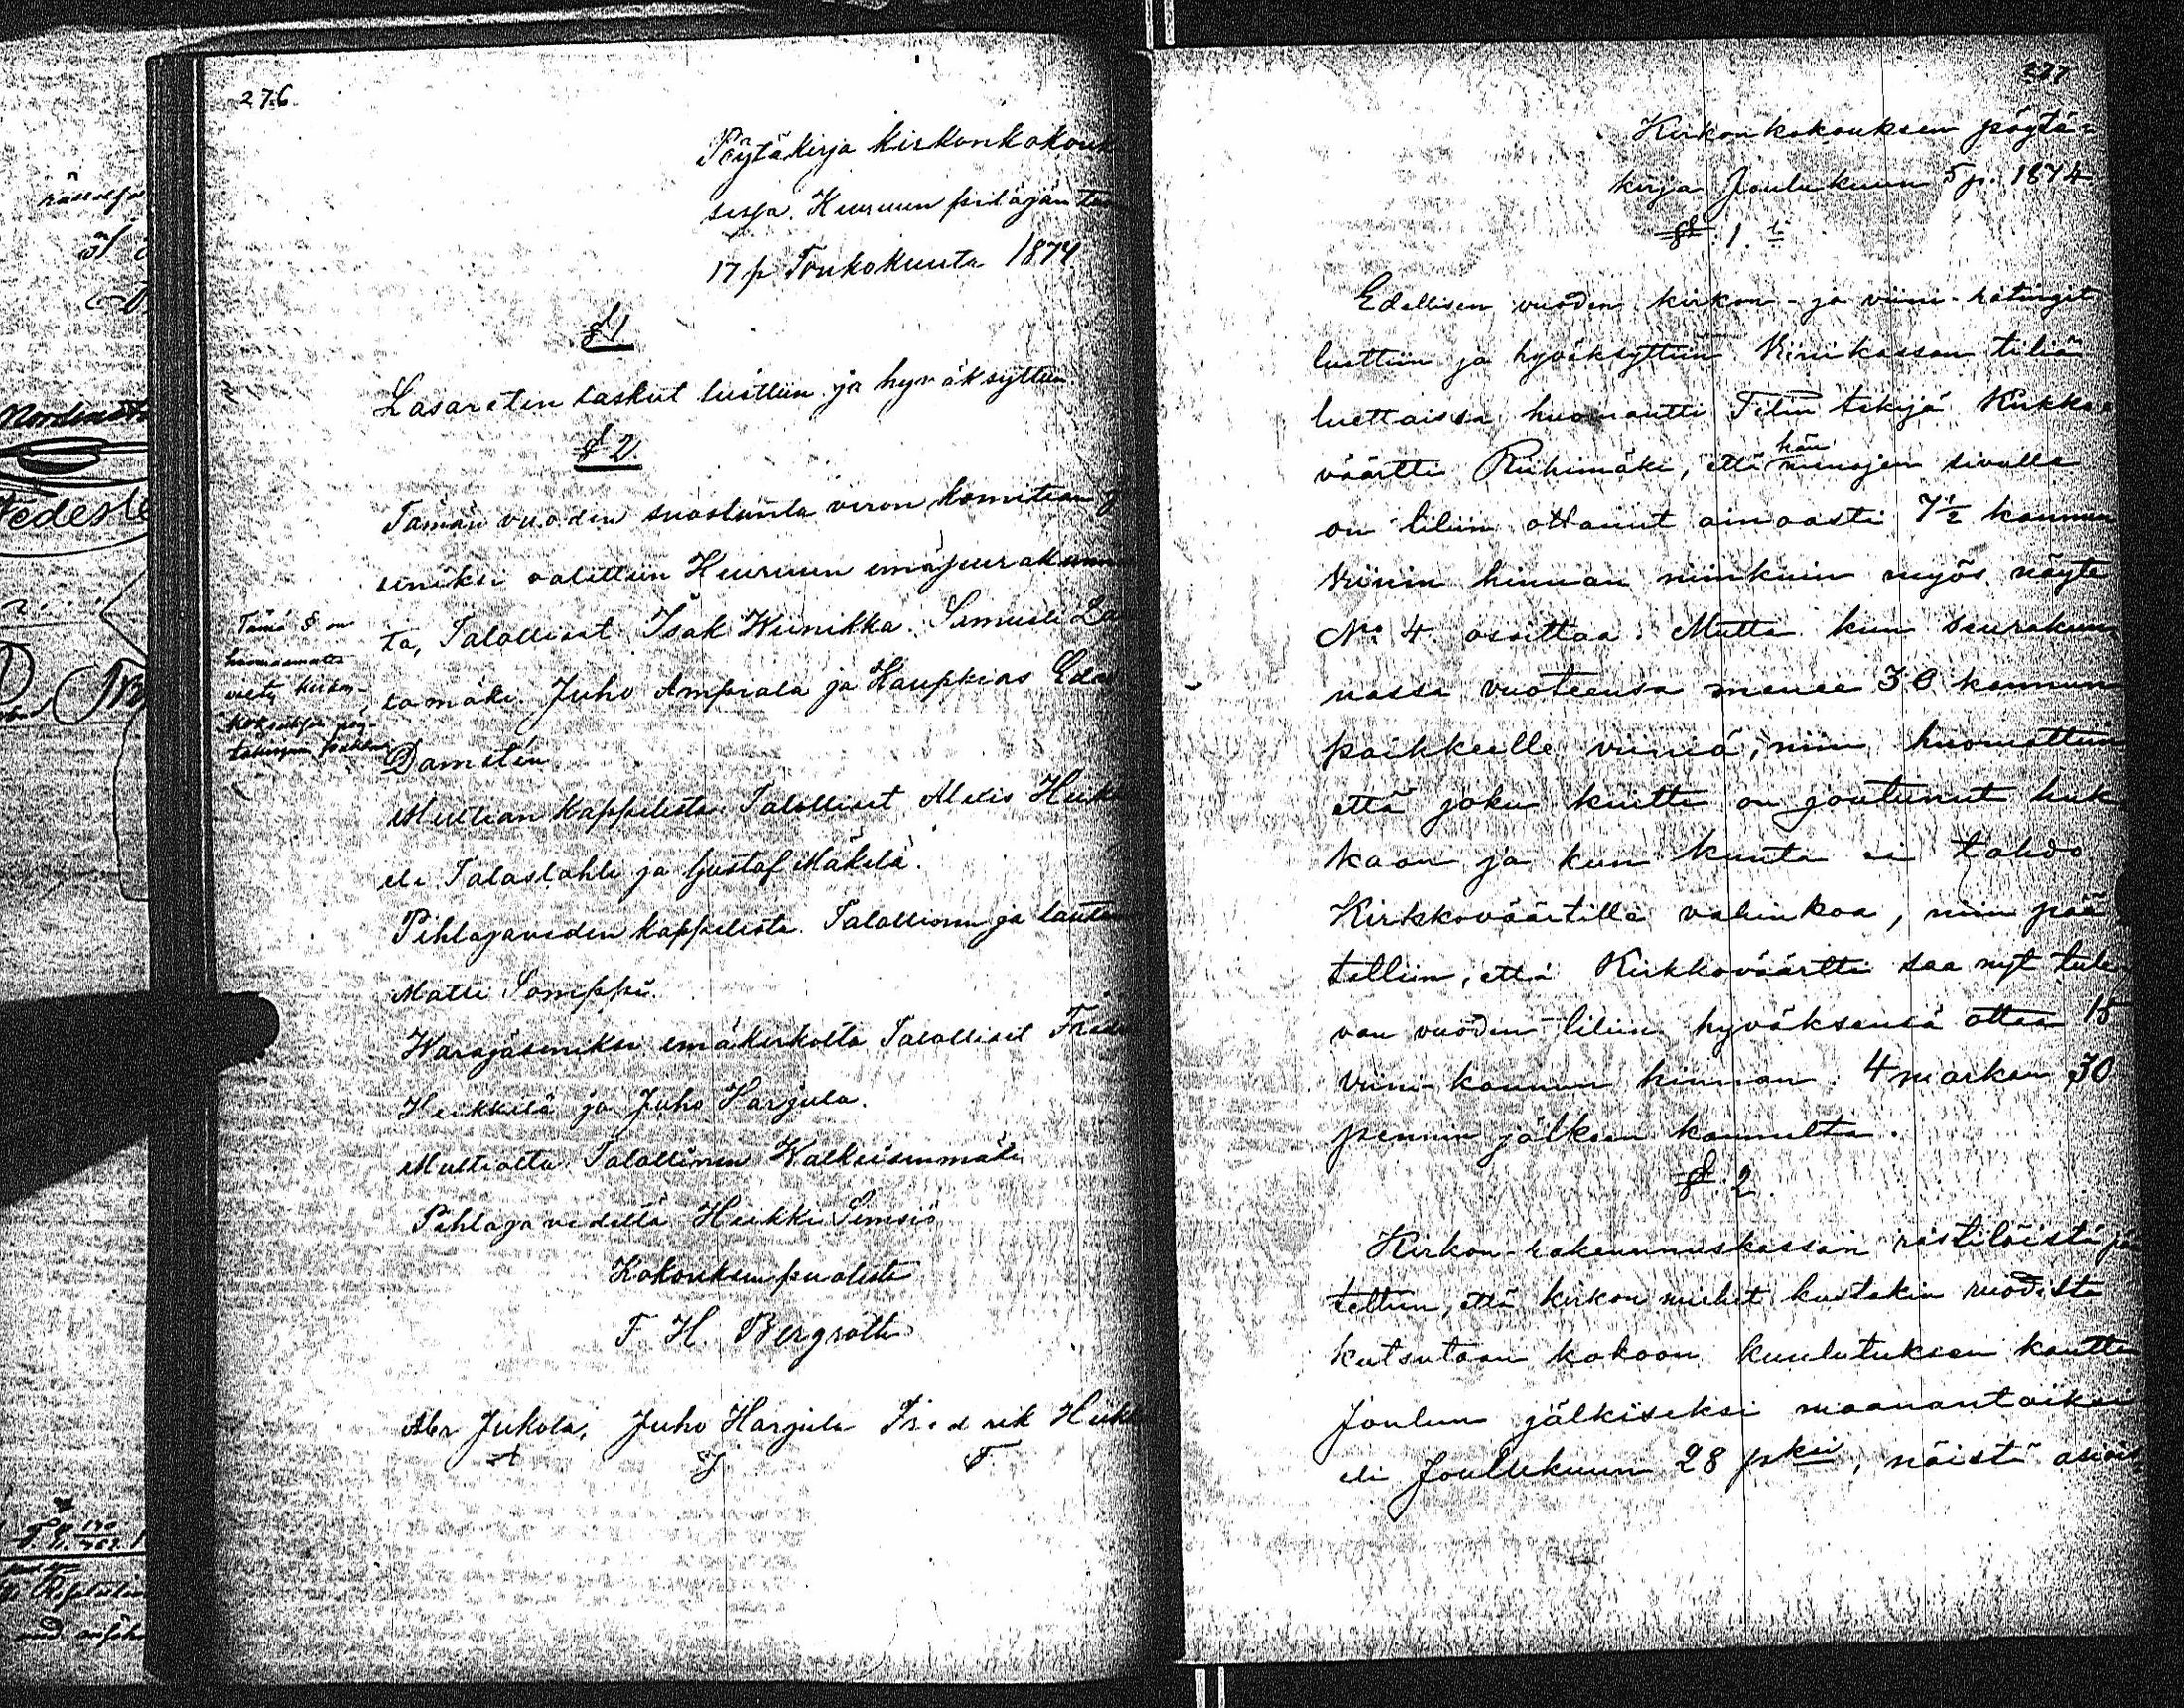 276.
Pöytäkirja kirkonkokouk
sessa. Keuruun pitäjän
17 p Toukokuuta 1874
§ 1.
Lasaretin laskut luettiin ja hyväksyttiin
§ 2.
Tämän vuoden suostunta veron komitean j
seniksi valittiin Keuruun emäseurakunn
ta, Talolliset Isak Wiinikka. Samueli La
tomäki. Juho Ampiala ja Kauppias Edv
Damstén
Multian kappelista Talolliset Alexis Heik
eli Talaslahti ja Gustaf Mäkelä.
Pihlajaveden kappelista. Talollinen ja lauta
Matti Somppi.
Warajäseniksi emäkirkolta Talolliset Fred
Heikkilä ja Juho Harjula.
Multialta Talollinen Walkeisenmäki
Pihlajavedeltä Heikki Simsiö
Kokouksen puolesta
F. H. Bergroth
Abr Jukola, Juho Harjula Fredrik Heikk
A J F
Tämä § on
huomaamatta
viety kirkon-
kokouksen pöy-
täkirjaan
277
Kirkonkokouksen pöytä-
kirja Joulukuun 5 p. 1874
§ 1.
Edellisen vuoden kirkon- ja viini-rätingit
luettiin ja hyväksyttiin Viinikassan tiliä
luettaissa huomautti Tilin tekijä Kirkko-
väärtti Riihimäki, että hän menojen sivulle
on tiliin ottanut ainoasti 7½ kannun
viinin hinnan niinkuin myös näyte
No 4 osoittaa. Mutta kun seurakun
nassa vuoteensa menee 30 kannun
paikkeille viiniä, niin huomattiin
että joku kuitti on joutunut huk
kaan ja kun kunta ei tahdo
Kirkkoväärtille vahinkoa, niin pää
tettiin, että Kirkkoväärtti saa nyt tule
van vuoden tiliin hyväksensä ottaa 15
viini-kannun hinnan 4 markan 30
pennin jälkeen kannulta.
§ 2.
Kirkon-rakennuskassan rästilöistä pä
tettiin, että kirkon miehet kustakin ruodista
kutsutaan kokoon kuulutuksen kautta
Joulun jälkiseksi maanantaiksi
eli Joulukuun 28 p:ksi, näistä asiois